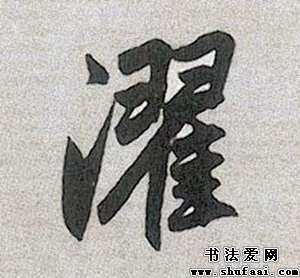 濯
书法爱网
www.shufaai.com